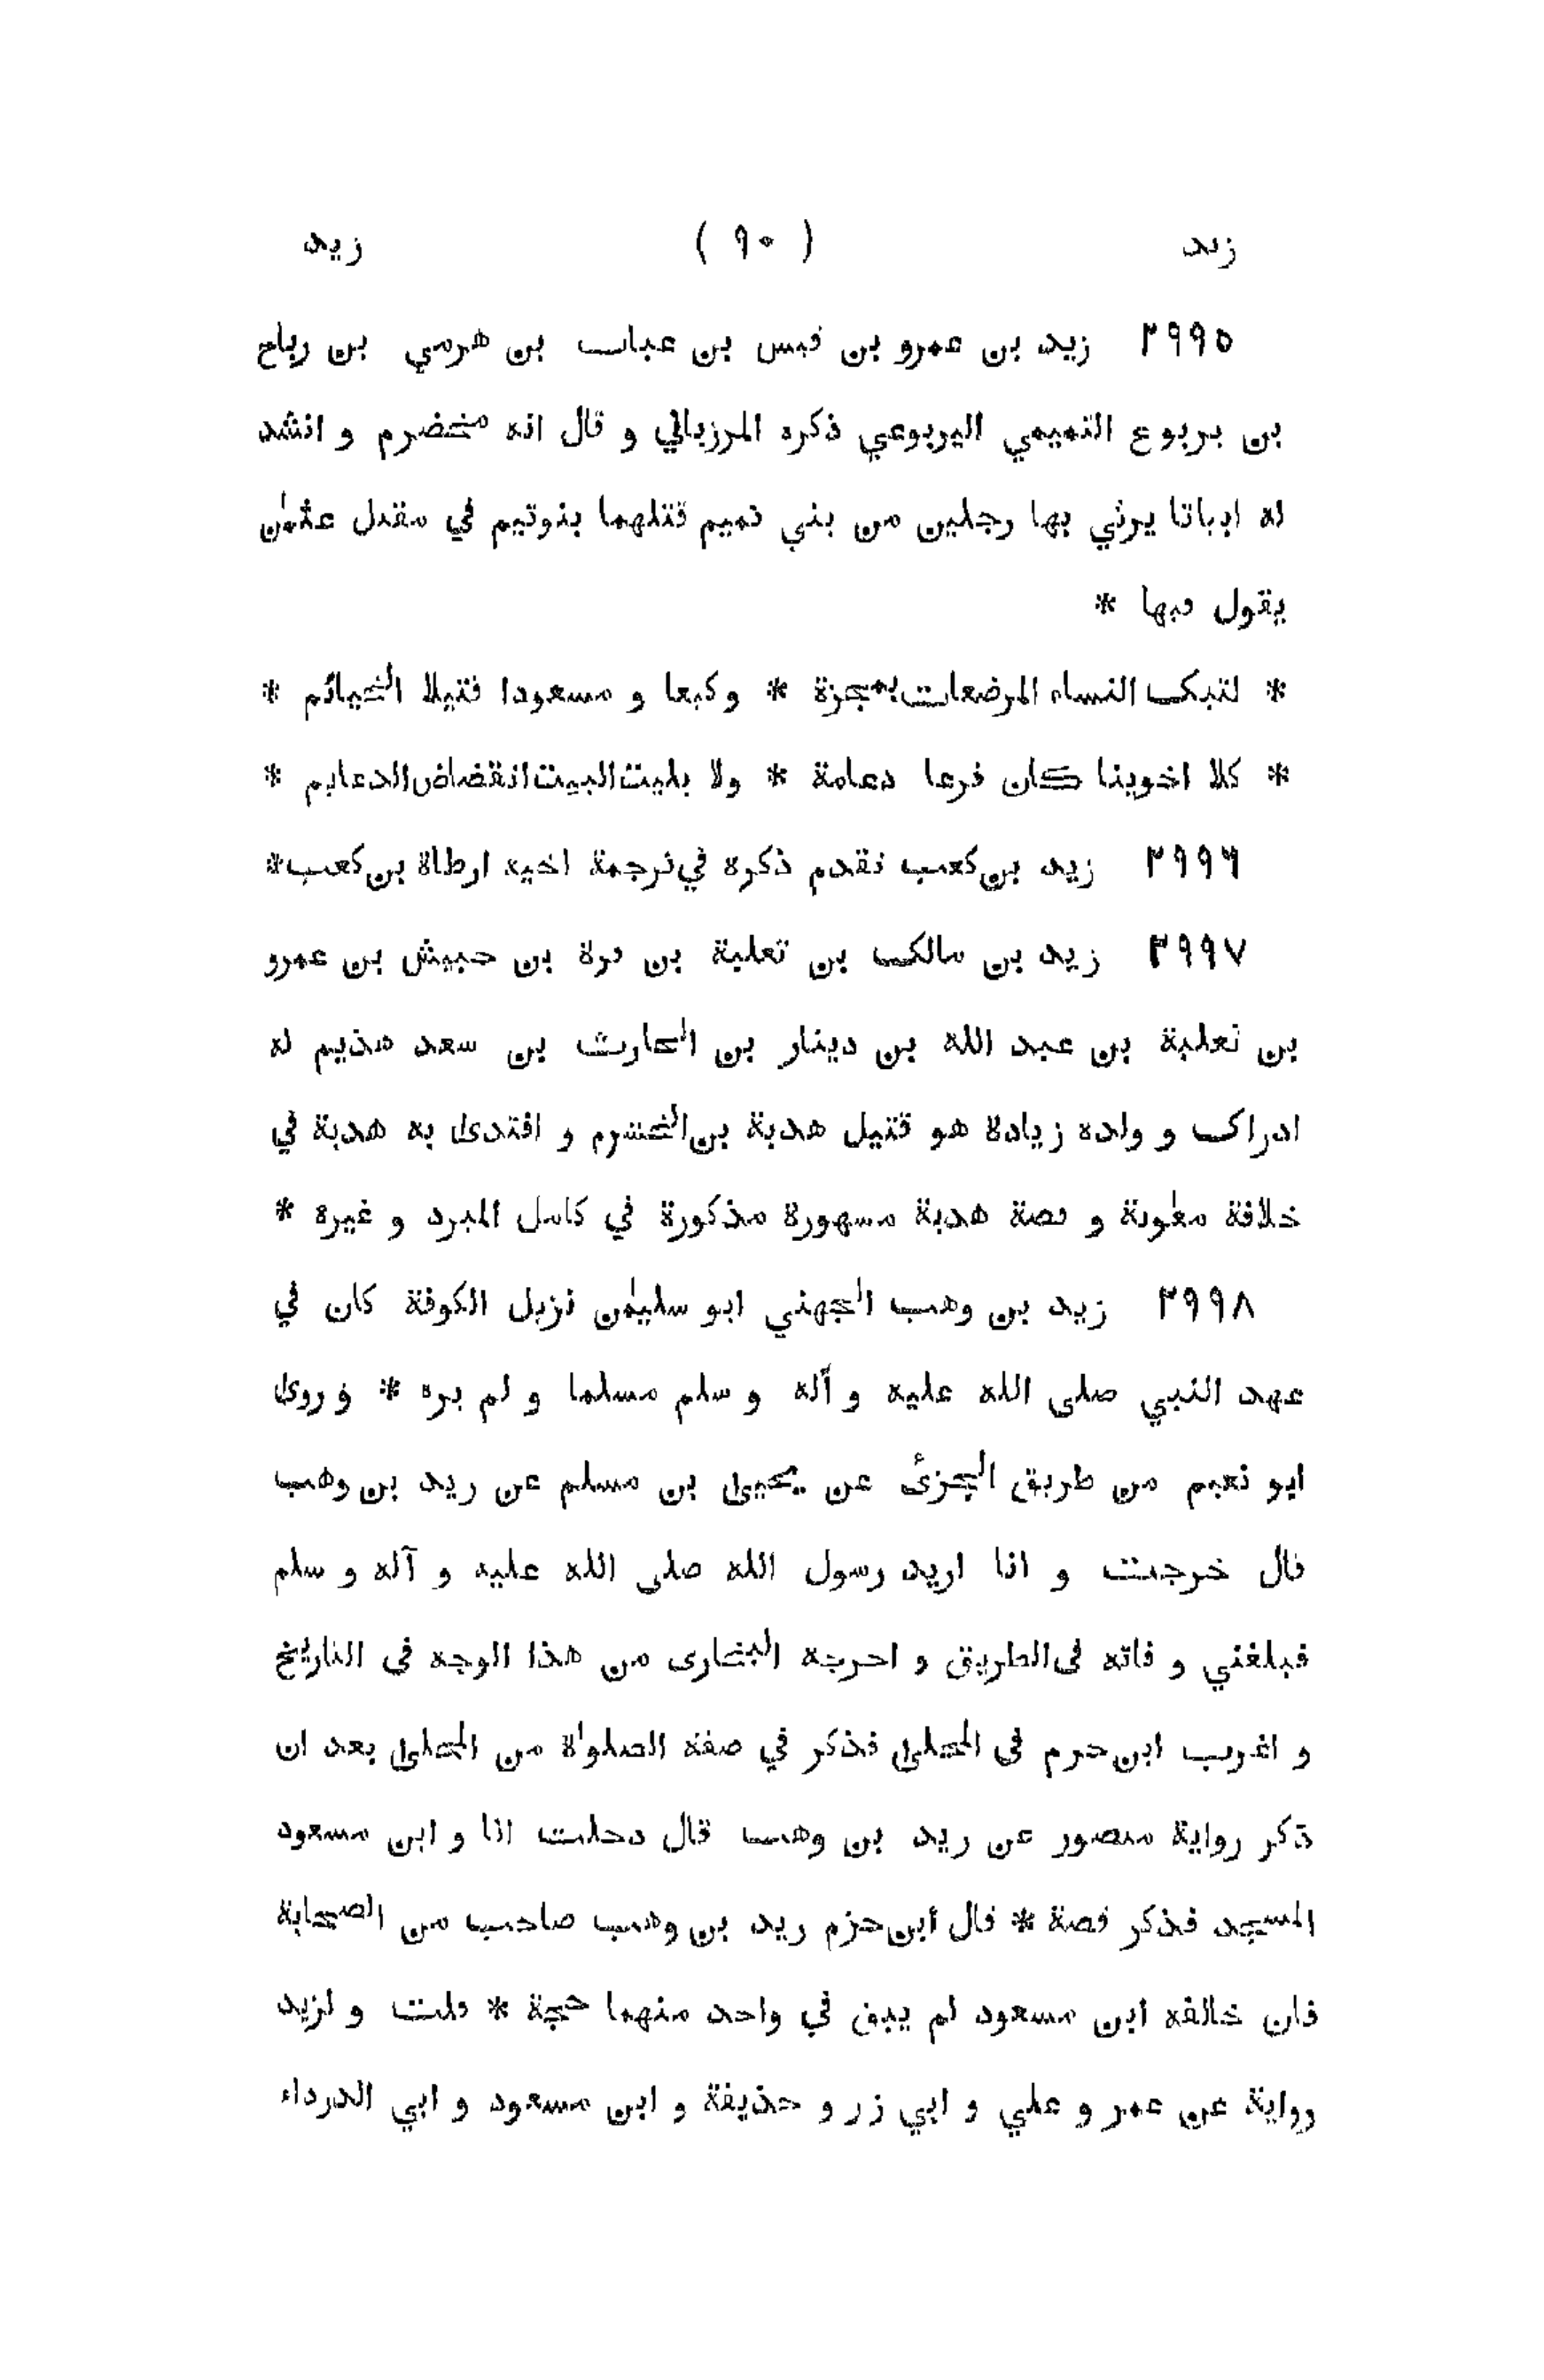 زيد ( ٩٠ ) زيد
٢٩٩٥ زيد بن عمرو بن قيس بن عتاب بن هرمي بن رياح
بن يربوع التميمي اليربوعي ذكره المرزباني و قال انه مخضرم و انشد
له ابياتا يرثي بها رجلين من بني تميم قتلهما بنوتيم في مقتل عثمٰن
يقول فيها *
* لتبك النساء المرضعات بمجزة * وكيعا و مسعودا قتيلا الخيائم *
* كلا اخوينا كان فرعا دعامة * ولا يلبث البيت انقضاض الدعايم *
٢٩٩٦ زيد بن كعب تقدم ذكره في ترجمة اخيه ارطاة بن كعب *
٢٩٩٧ زيد بن مالك بن ثعلبة بن قرة بن حبيش بن عمرو
بن ثعلبة بن عبد الله بن دينار بن الحارث بن سعد هذيم له
ادراك و ولده زيادة هو قتيل هدبة بن الخشرم و افتدى به هدبة في
خلافة معٰوية و قصة هدبة مشهورة مذكورة في كامل المبرد و غيره *
٢٩٩٨ زيد بن وهب الجهني ابو سليمٰن نزيل الكوفة كان في
عهد النبي صلى الله عليه و آله و سلم مسلما و لم يره * و روى
ابو نعيم من طريق الجزئ عن يحيى بن مسلم عن زيد بن وهب
قال خرجت و انا اريد رسول الله صلى الله عليه و آله و سلم
فبلغني و فاته فى الطريق و اخرجه البخارى من هذا الوجه فى التاريخ
و اغرب ابن حزم فى المحلى فذكر في صفة الصلوٰة من المحلى بعد ان
ذكر رواية منصور عن زيد بن وهب قال دخلت انا و ابن مسعود
المسجد فذكر قصة * قال ابن حزم زيد بن وهب صاحب من الصحابة
فان خالفه ابن مسعود لم يبق في واحد منهما حجة * قلت و لزيد
رواية عن عمر و علي و ابي زر و حذيفة و ابن مسعود و ابي الدرداء